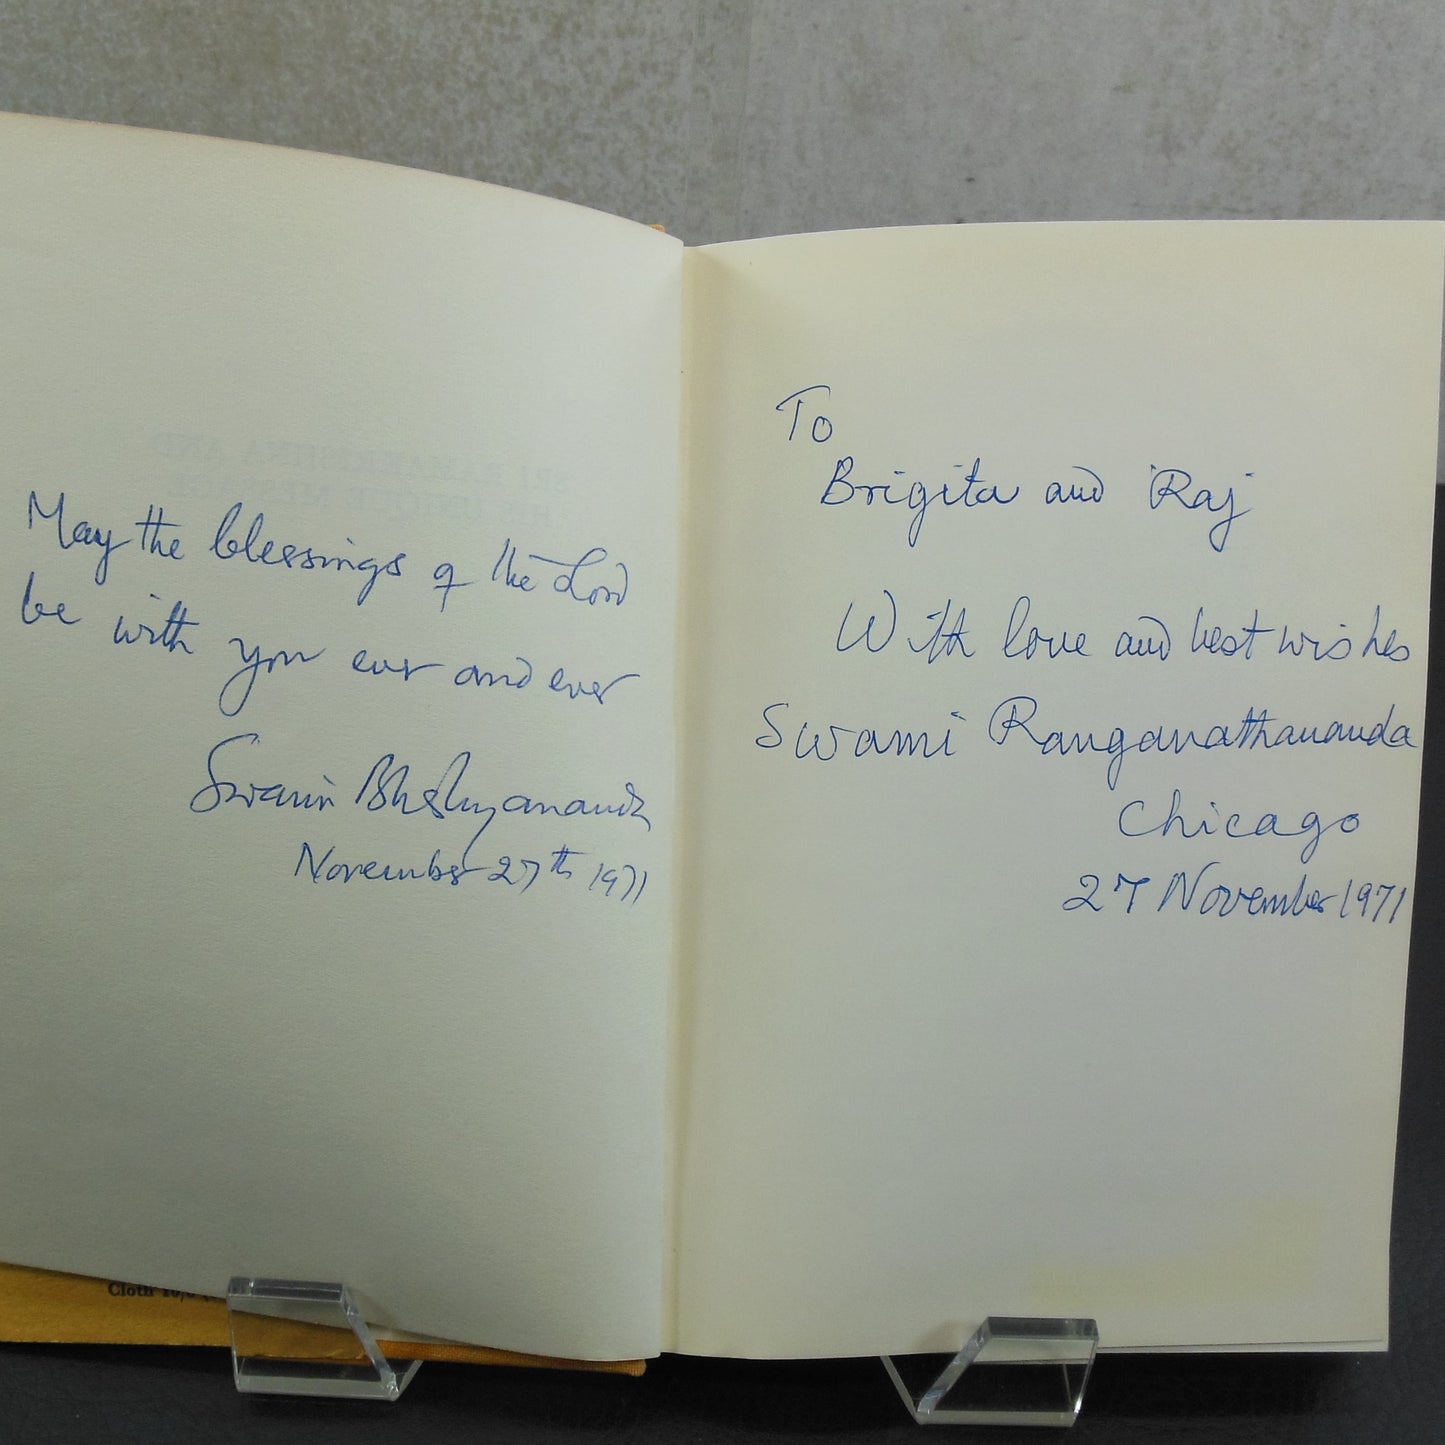 May the blessings of the Lord
be with you ever and ever
Swami Bhashyananda
November 27th 1971
To
Brigita and Raj
With love and best wishes
Swami Ranganathananda
Chicago
27 November 1971
SRI RAMAKRISHNA AND
Cloth